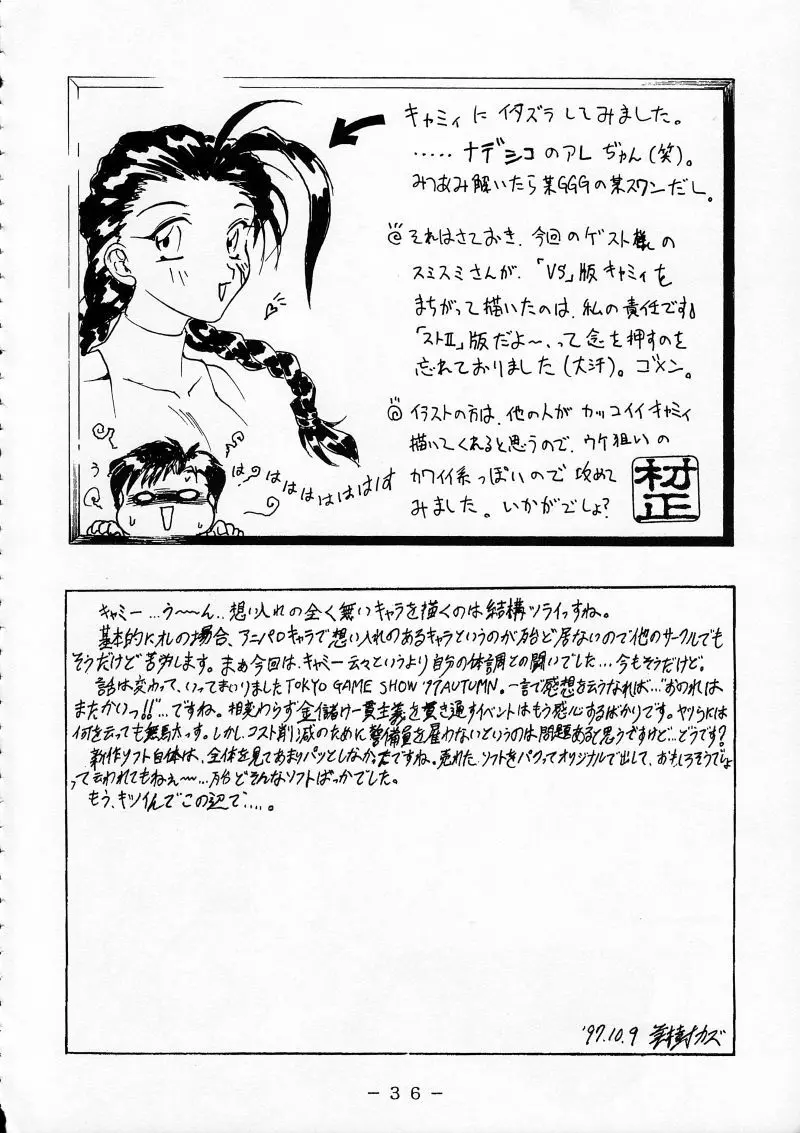 キャミィに イタズラ してみました。
‥‥‥ナデシコのアレぢゃん(笑)。
みつあみ解いたら某GGGの某スワンだし。
それはさておき、今回のゲスト様の
スミスミさんが、「VS」版キャミィを
まちがって描いたのは、私の責任です。
「ストⅡ」版だよ～、って念を押すのを
忘れておりました(大汗)。ゴメン。
イラストの方は、他の人が カッコイイキャミィ
描いてくれると思うので、ウケ狙いの
カワイイ系っぽいので 攻めて
みました。いかがでしょ?
村正
う
はははははははす
キャミー…う～～ん…想い入れの全く無いキャラを描くのは結構ツライっすね。
基本的にオレの場合、アニパロのキャラで想い入れのあるキャラというのが殆ど居ないので他のサークルでも
そうだけど苦労します。まぁ今回は、キャミー云々というより自分の体調との闘いでした…今もそうだけど。
話は変わって、いってまいりましたTOKYO GAME SHOW '97 AUTUMN。一言で感想を云うなれば…"おのれは
またかいっ!!"…ですね。相変わらず金儲け一貫主義を貫き通すイベントはもう感心するばかりです。ヤツらには
何を云っても無駄っす。しかし、コスト削減のために警備員を雇わないというのは問題あると思うですけど…どうです?
新作ソフト自体は、全体を見てあまりパッとしなかったですね。売れたソフトをパクってオリジナルで出して、おもしろそうでしょ
って云われてもねぇ～…殆どそんなソフトばっかでした。
もう、キツイんでこの辺で…。
'97.10.9 カズ
- 36 -